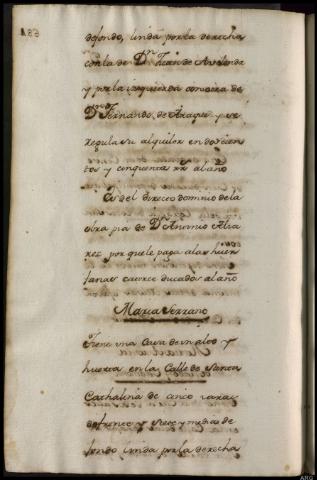 de fondo, linda por la derecha
con la de Dn Juan de
y por la izquierda con otra de
Dn Fernando de Araque y se
regula su alquiler en doscien
tos y cinquenta rs al año
Es del directo dominio de la
obra pia de Dn Antonio Alva
rez por que le paga a las huer
fanas catorce ducados al año
Maria Serrano
Tiene una Casa de un alto y
huerta en la Calle de Santa
Cathalina de cinco varas
de frente y siete y media de
fondo linda por la derecha